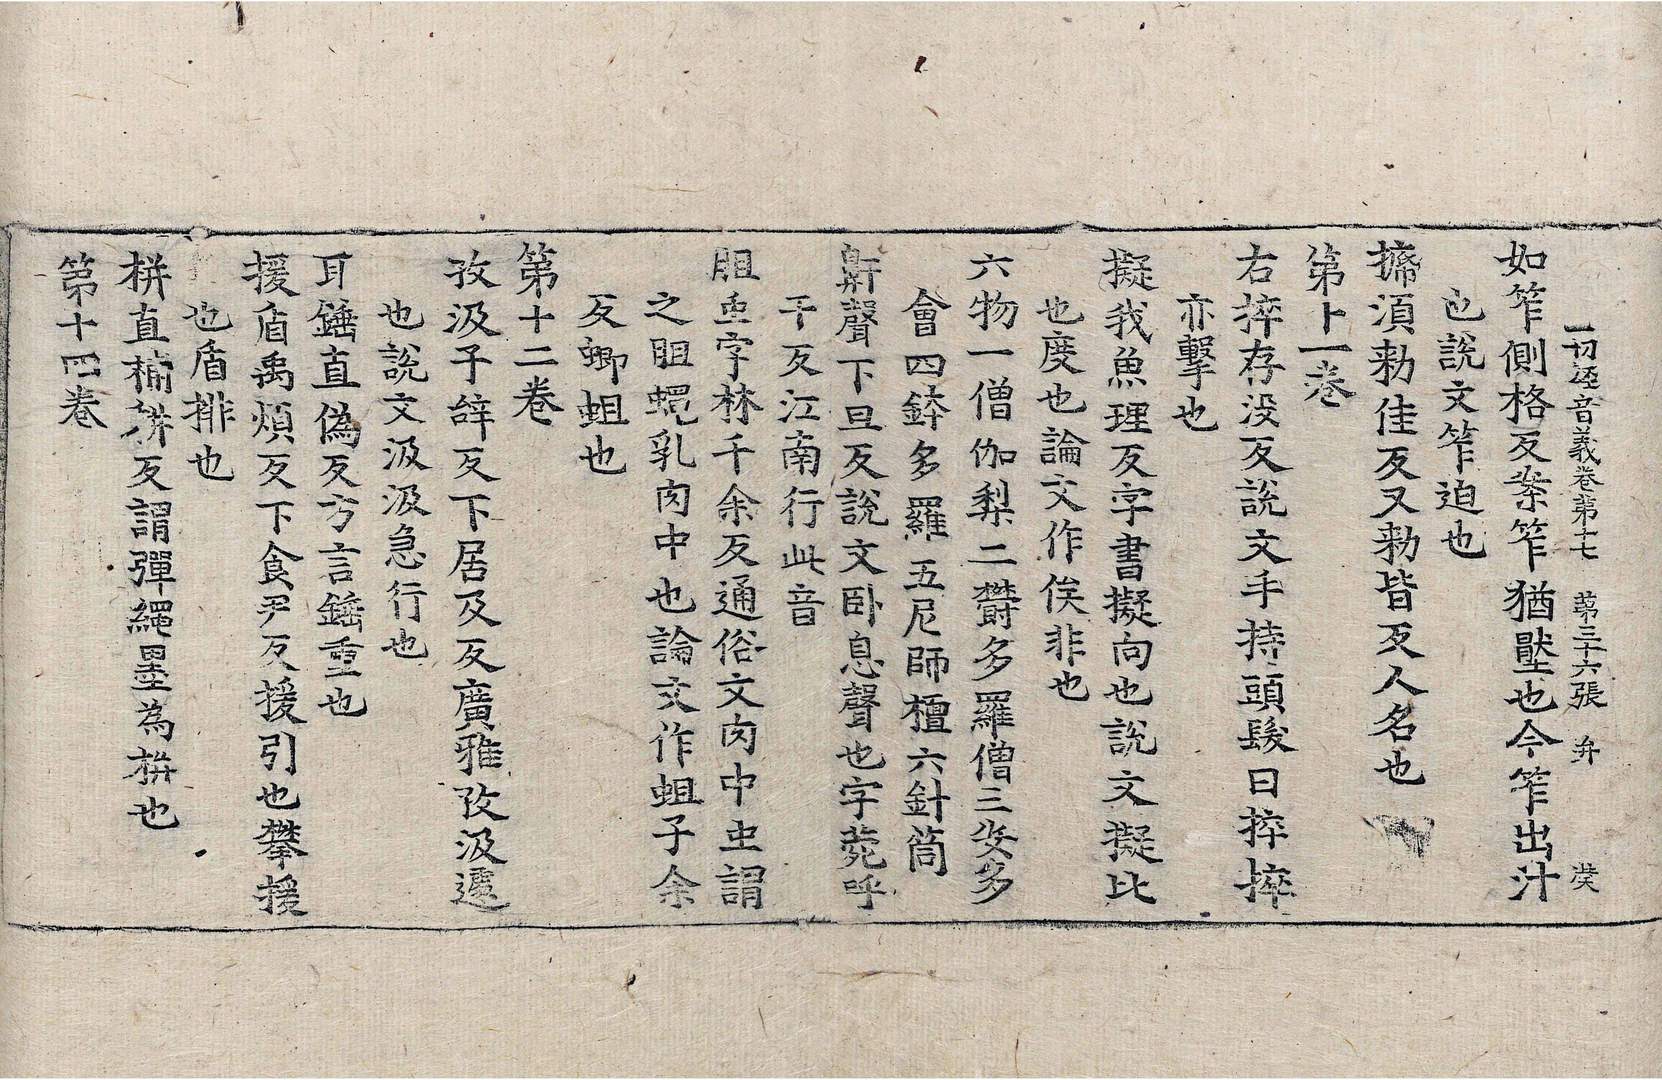 一切經音義卷第十七 第三十六張 弁 㒒
如笮側格反案笮猶壓也今笮出汁
也說文笮迫也
㨖湏勑佳反又勑皆反人名也
第十一卷
右捽存没反說文手持頭髮曰捽捽
亦擊也
擬我魚理反字書擬向也說文擬比
也度也論文作俟非也
六物一僧伽梨二欝多羅僧三安多
會四鉢多羅五尼師檀六針筒
鼾聲下旦反說文卧息聲也字苑呼
干反江南行此音
胆虫字林千余反通俗文肉中虫謂
之胆蠅乳肉中也論文作蛆子余
反蝍蛆也
第十二卷
孜汲子辝反下居及反廣雅孜汲遽
也說文汲汲急行也
耳錘直偽反方言錘重也
援盾禹煩反下食尹反援引也攀援
也盾排也
栟直補栟反謂彈繩墨為栟也
第十四卷